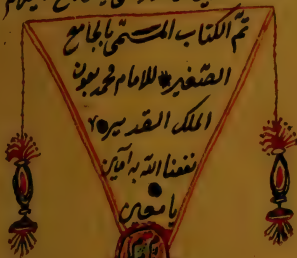 تم الكتاب المسمى بالجامع
الصغير للامام محمد بعون
الملك القدير
نفعنا الله به آمين
يا معين